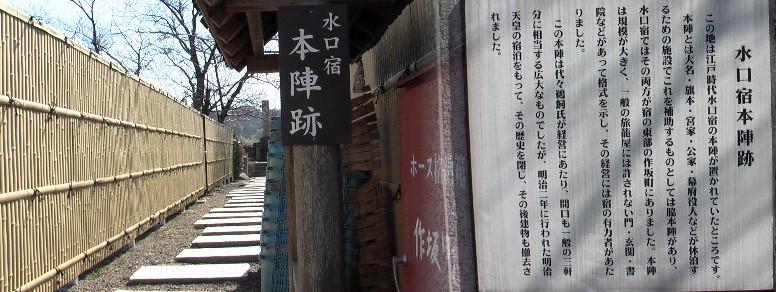 水口宿
本陣跡
ホース格納箱
作坂町
水口宿本陣跡
この地は江戸時代水口宿の本陣が置かれていたところです。
本陣とは大名・旗本・宮家・公家・幕府役人などが休泊す
るための施設でこれを補助するものとしては脇本陣があり、
水口宿ではその両方が宿の東部の作坂町にありました。本陣
は規模が大きく、一般の旅籠屋には許されない門・玄関・書
院などがあって格式を示し、その経営には宿の有力者があた
りました。
この本陣は代々鵜飼氏が経営にあたり、間口も一般の三軒
分に相当する広大なものでしたが、明治二年に行われた明治
天皇の宿泊をもって、その歴史を閉じ、その後建物も撤去さ
れました。